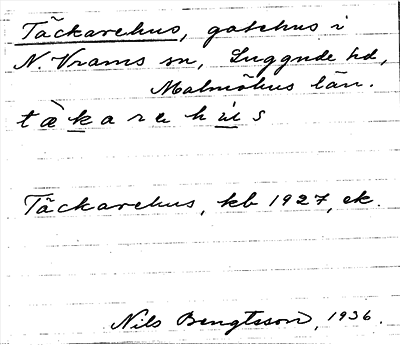 Täckarehus, gatehus i
N. Vrams sn, Luggude hd,
Malmöhus län.
tæ̀karehúis
Täckarehus, kb 1927, ek.
Nils Bengtsson, 1936.